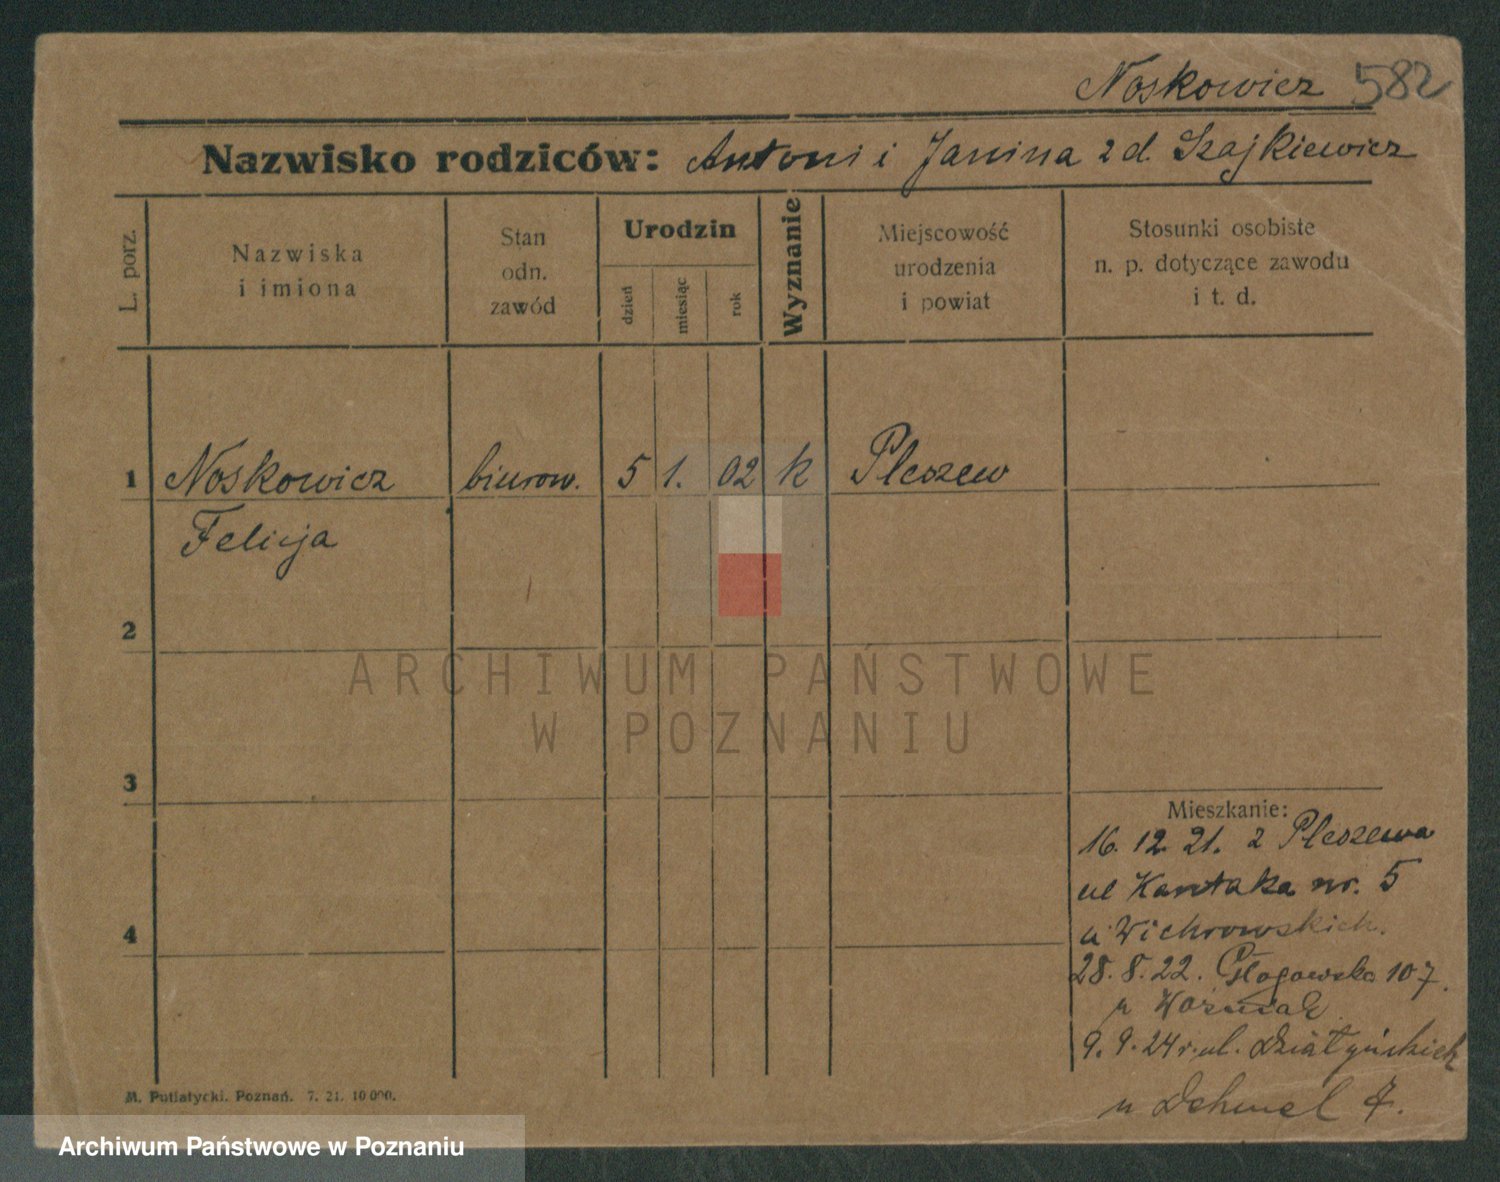 Noskowicz 582
Nazwisko rodziców: Antoni i Janina z d. Szajkiewicz
L. porz.
Nazwiska
i imiona
Stan
odn.
zawód
Urodzin
dzień
miesiąc
rok
Wyznanie
Miejscowość
urodzenia
i powiat
Stosunki osobiste
n. p. dotyczące zawodu
i t. d.
1 Noskowicz biurow. 5 1. 02 k Pleszew
Felicja
2
ARCHIWUM PAŃSTWOWE
W POZNANIU
3
Mieszkanie:
16. 12. 21. z Pleszewa
ul Kantaka nr. 5
u Wichrowskich.
4
28. 8. 22. Głogowska 107.
u Woźniak
9. 9. 24 r. ul. Działyńskich
u Dehmel 7.
M. Putiatycki. Poznań. 7. 21. 10 000.
Archiwum Państwowe w Poznaniu